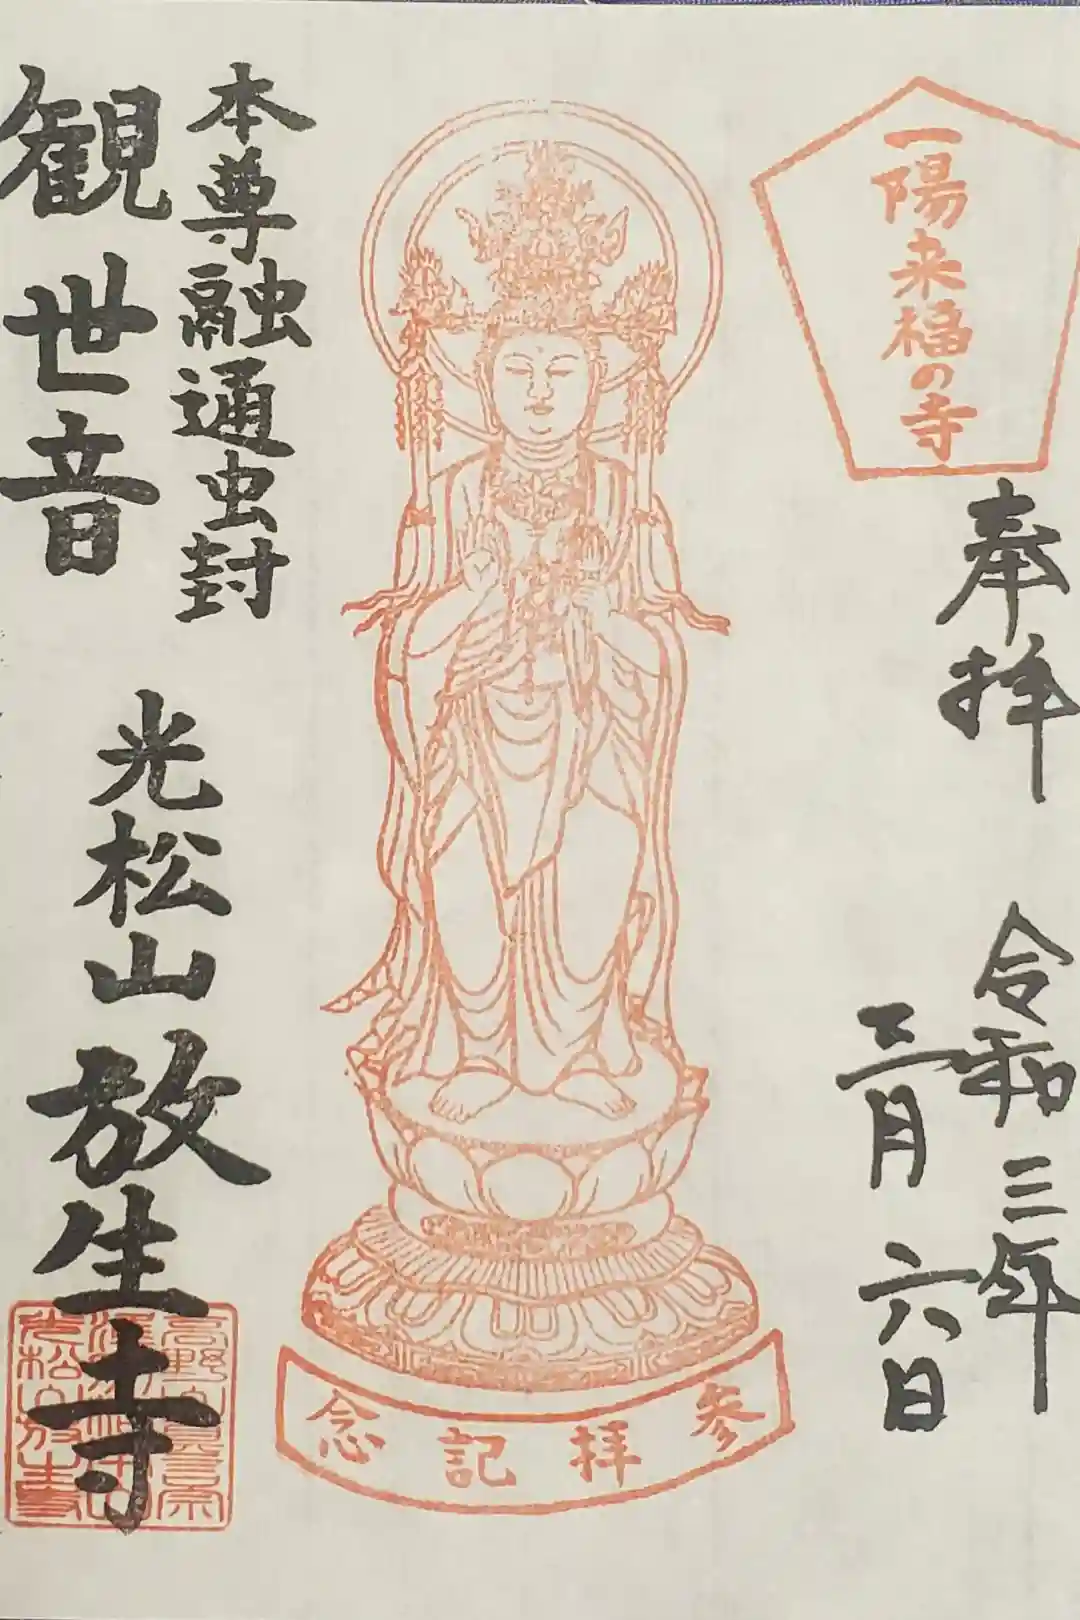 一陽来福の寺
奉拝
令和三年
三月六日
参拝記念
本尊融通虫封
観世音
光松山放生寺